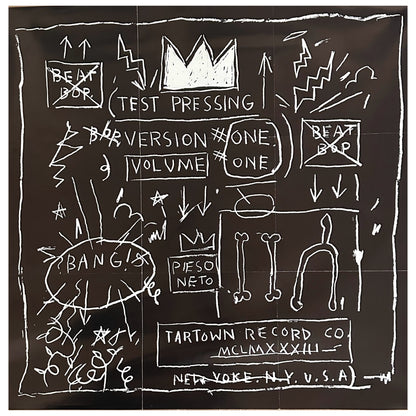 BEAT
BOP
TEST PRESSING
BOP VERSION # ONE.
VOLUME # ONE
BEAT
BOP
BANG!
PIESO
NETO
TARTOWN RECORD CO.
MCLMXXXIII
NEW YORK. N.Y. U.S.A